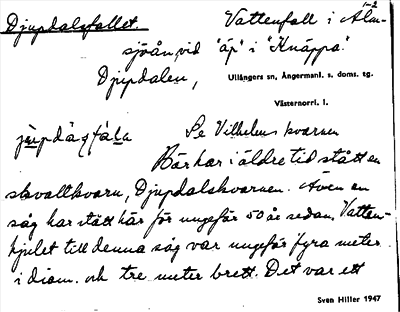 1-2
Djupdalsfallet. Vattenfall i Älm-
sjöån vid "äp" i "Knäppa."
Djupdalen,
Ullångers sn, Ångermanl. s. doms. tg.
Västernorrl. l.
Se Vilhelms kvarnen
Här har i äldre tid stått en
skvaltkvarn, Djupdalskvarnen. Även en
såg har stått här för ungefär 50 år sedan. Vatten-
hjulet till denna såg var ungefär fyra meter
i diam. och tre meter brett. Det var ett
Sven Hiller 1947